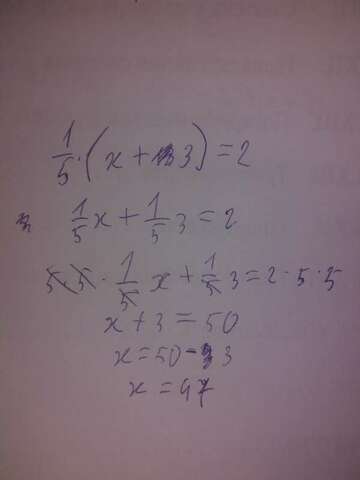 1/5 · (x + 3) = 2
1/5 x + 1/5 3 = 2
5 · 5 · 1/5 x + 1/5 3 = 2 · 5 · 5
x + 3 = 50
x = 50 - 3
x = 47